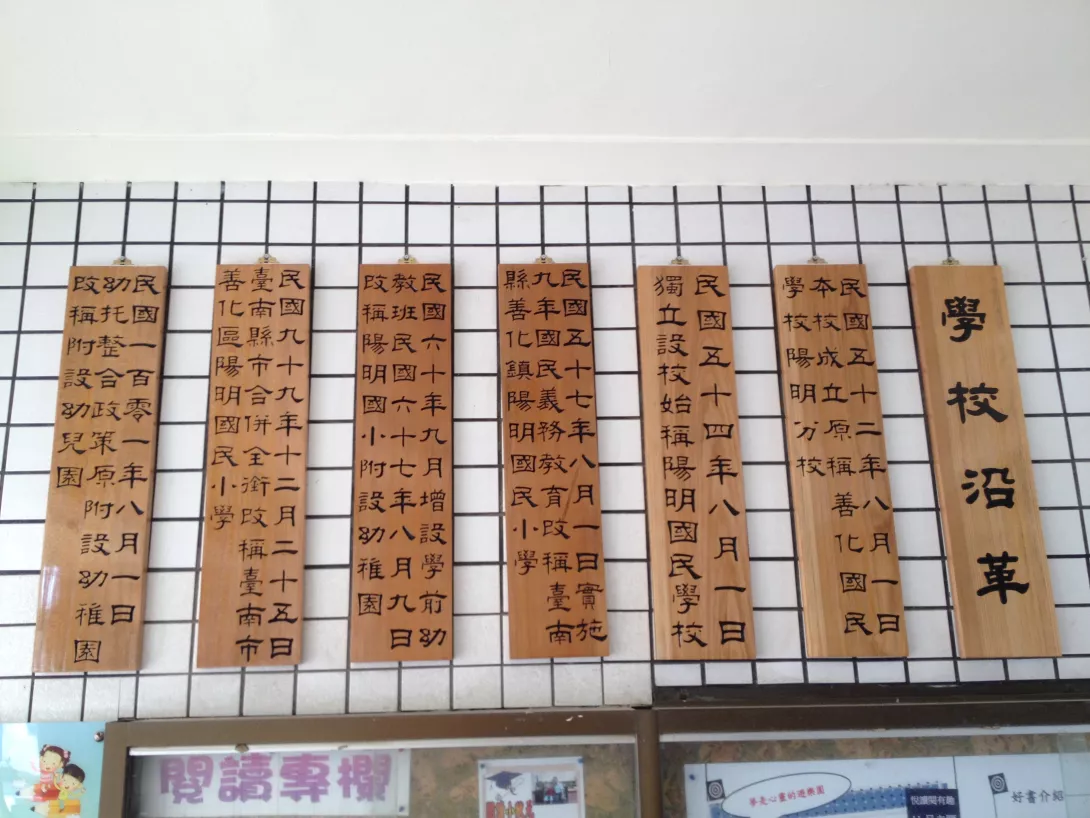 學校沿革
民國五十二年八月一日
本校成立原稱善化國民
學校陽明分校
民國五十四年八月一日
獨立設校始稱陽明國民學校
民國五十七年八月一日實施
九年國民義務教育改稱臺南
縣善化鎮陽明國民小學
民國六十年九月增設學前幼
教班民國六十七年八月九日
改稱陽明國小附設幼稚園
民國九十九年十二月二十五日
臺南縣市合併全銜改稱臺南市
善化區陽明國民小學
民國一百零一年八月一日
幼托整合政策原附設幼稚園
改稱附設幼兒園
閱讀專欄
學是心靈的遊樂園
好書介紹